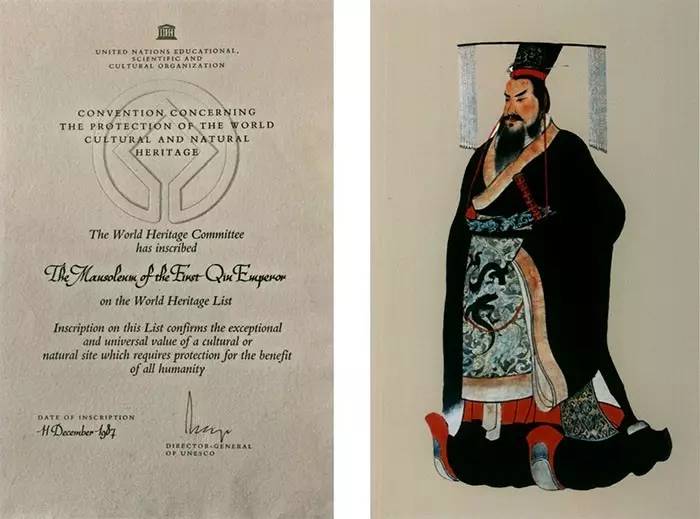 UNITED NATIONS EDUCATIONAL,
SCIENTIFIC AND
CULTURAL ORGANIZATION
CONVENTION CONCERNING
THE PROTECTION OF THE WORLD
CULTURAL AND NATURAL
HERITAGE
The World Heritage Committee
has inscribed
The Mausoleum of the First Qin Emperor
on the World Heritage List
Inscription on this List confirms the exceptional
and universal value of a cultural or
natural site which requires protection for the benefit
of all humanity
DATE OF INSCRIPTION
11 December 1987
DIRECTOR-GENERAL
OF UNESCO